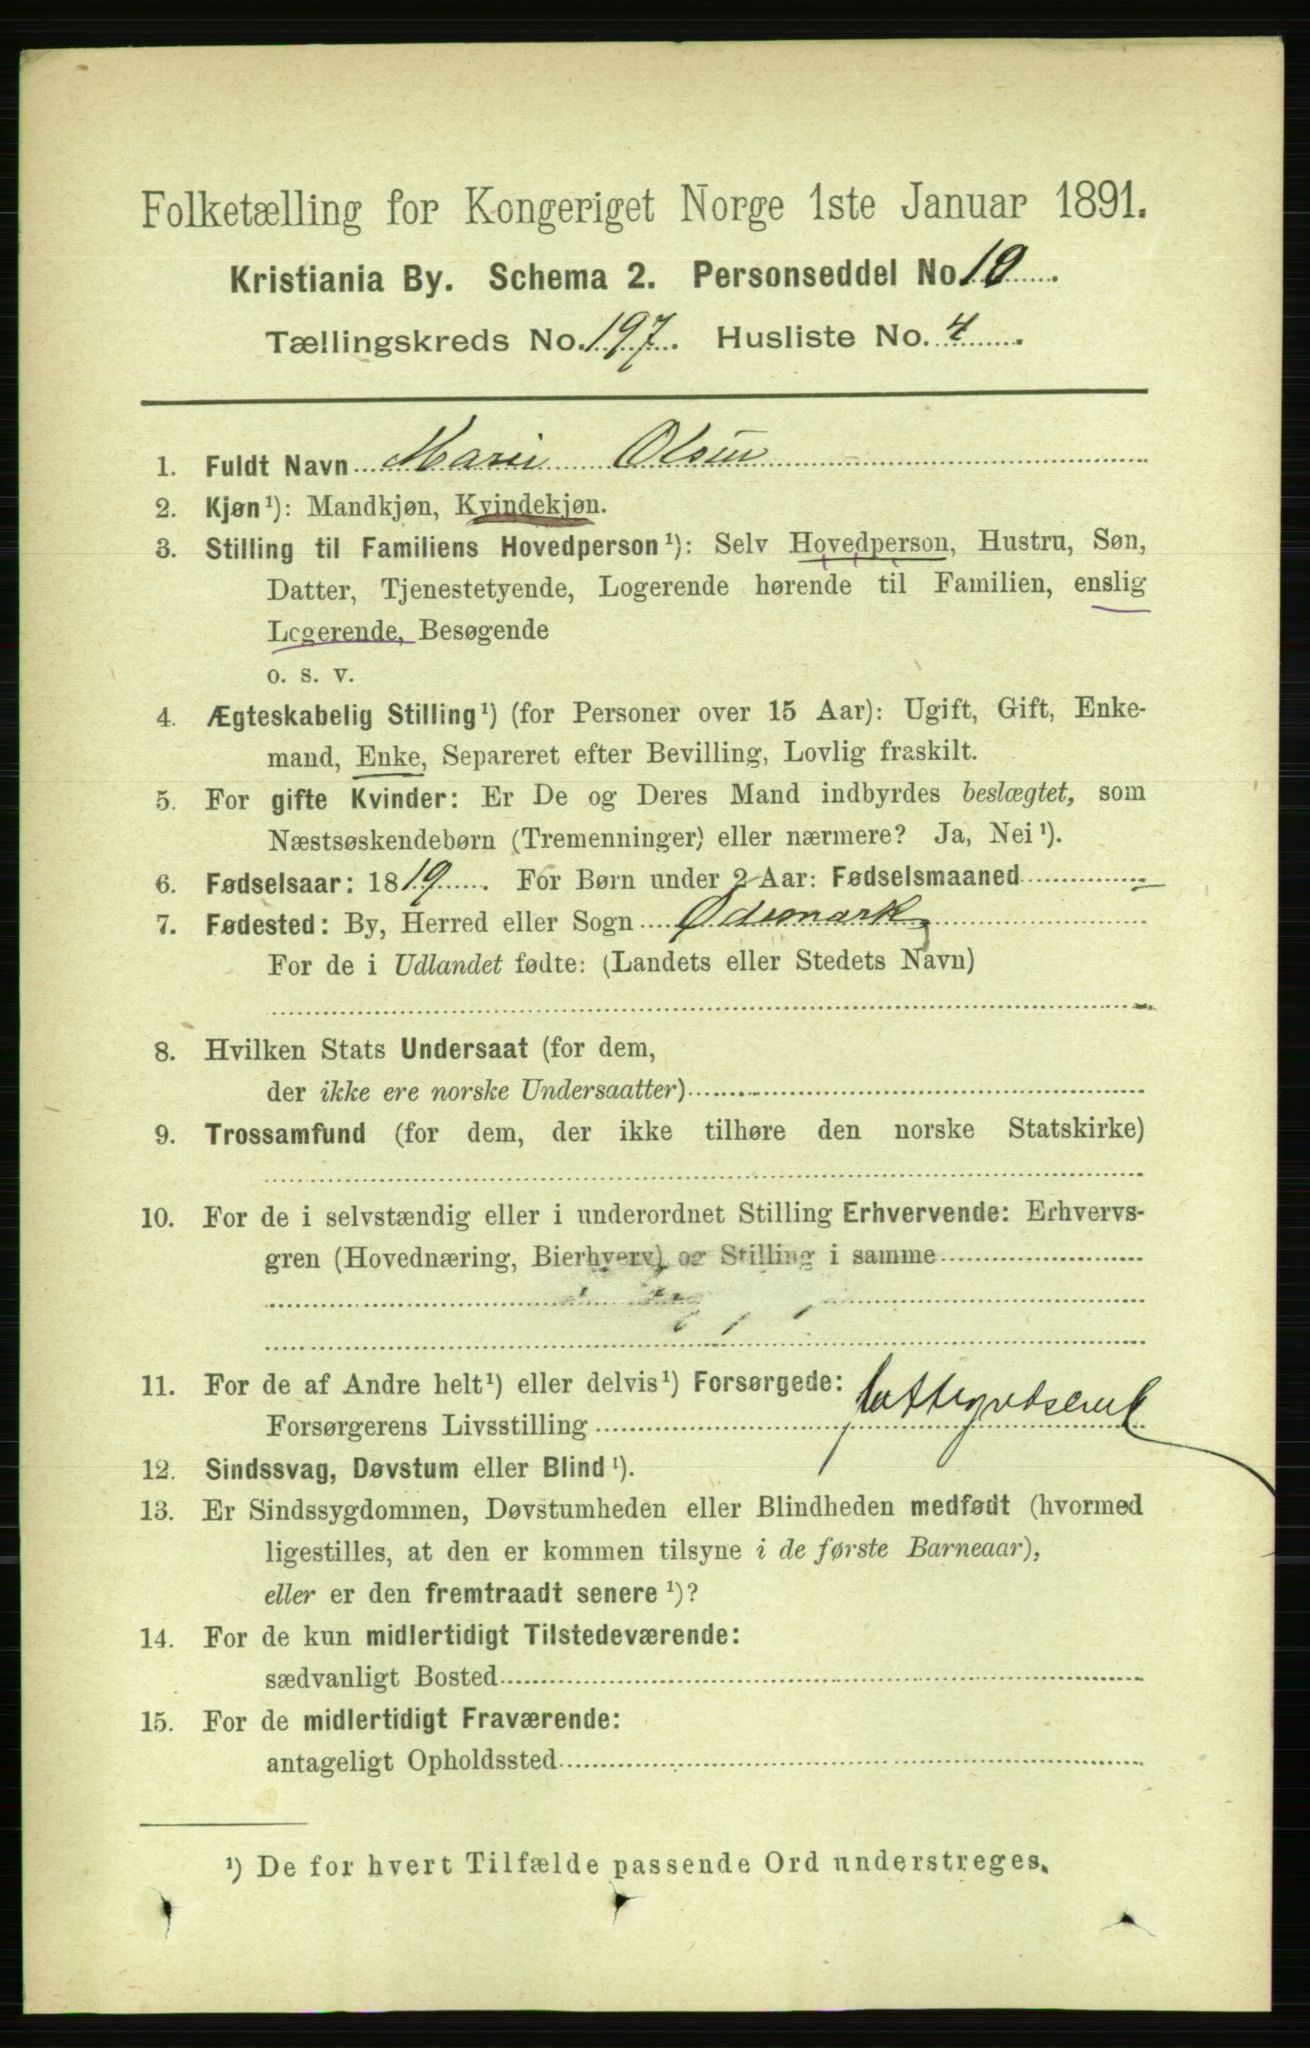 Folketælling for Kongeriget Norge 1ste Januar 1891.
Kristiania By. Schema 2. Personseddel No 10
Tællingskreds No. 197. Husliste No. 4
1. Fuldt Navn Marie Olsen
2. Kjøn¹): Mandkjøn, Kvindekjøn.
3. Stilling til Familiens Hovedperson¹): Selv Hovedperson, Hustru, Søn,
Datter, Tjenestetyende, Logerende hørende til Familien, enslig
Logerende, Besøgende
o. s. v.
4. Ægteskabelig Stilling¹) (for Personer over 15 Aar): Ugift, Gift, Enke-
mand, Enke, Separeret efter Bevilling, Lovlig fraskilt.
5. For gifte Kvinder: Er De og Deres Mand indbyrdes beslægtet, som
Næstsøskendebørn (Tremenninger) eller nærmere? Ja, Nei¹).
6. Fødselsaar: 1819. For Børn under 2 Aar: Fødselsmaaned
7. Fødested: By, Herred eller Sogn Ødemark
For de i Udlandet fødte: (Landets eller Stedets Navn)
8. Hvilken Stats Undersaat (for dem,
der ikke ere norske Undersaatter)
9. Trossamfund (for dem, der ikke tilhøre den norske Statskirke)
10. For de i selvstændig eller i underordnet Stilling Erhvervende: Erhvervs-
gren (Hovednæring, Bierhverv) og Stilling i samme
11. For de af Andre helt¹) eller delvis¹) Forsørgede:
Forsørgerens Livsstilling fattigvæsenet
12. Sindssvag, Døvstum eller Blind¹).
13. Er Sindssygdommen, Døvstumheden eller Blindheden medfødt (hvormed
ligestilles, at den er kommen tilsyne i de første Barneaar),
eller er den fremtraadt senere¹)?
14. For de kun midlertidigt Tilstedeværende:
sædvanligt Bosted
15. For de midlertidigt Fraværende:
antageligt Opholdssted
¹) De for hvert Tilfælde passende Ord understreges.